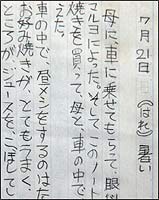 7月21日(はれ)暑い
母に、車に乗せてもらって、眼
マルヨによった。そして、このノート
焼きを買って、母と、車の中で
えた。
車の中で、昼メシをするのはた
お好み焼きが、とてもうまく、
ところがジュースを、こぼして